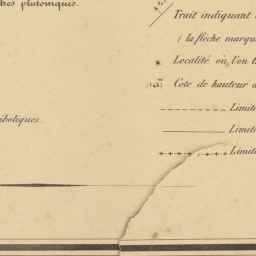 plutoniques.
Trait indiquant
(la flèche marqu
Localité où l'on t
Cote de hauteur d
Limite
boliques.
Limit
Limit